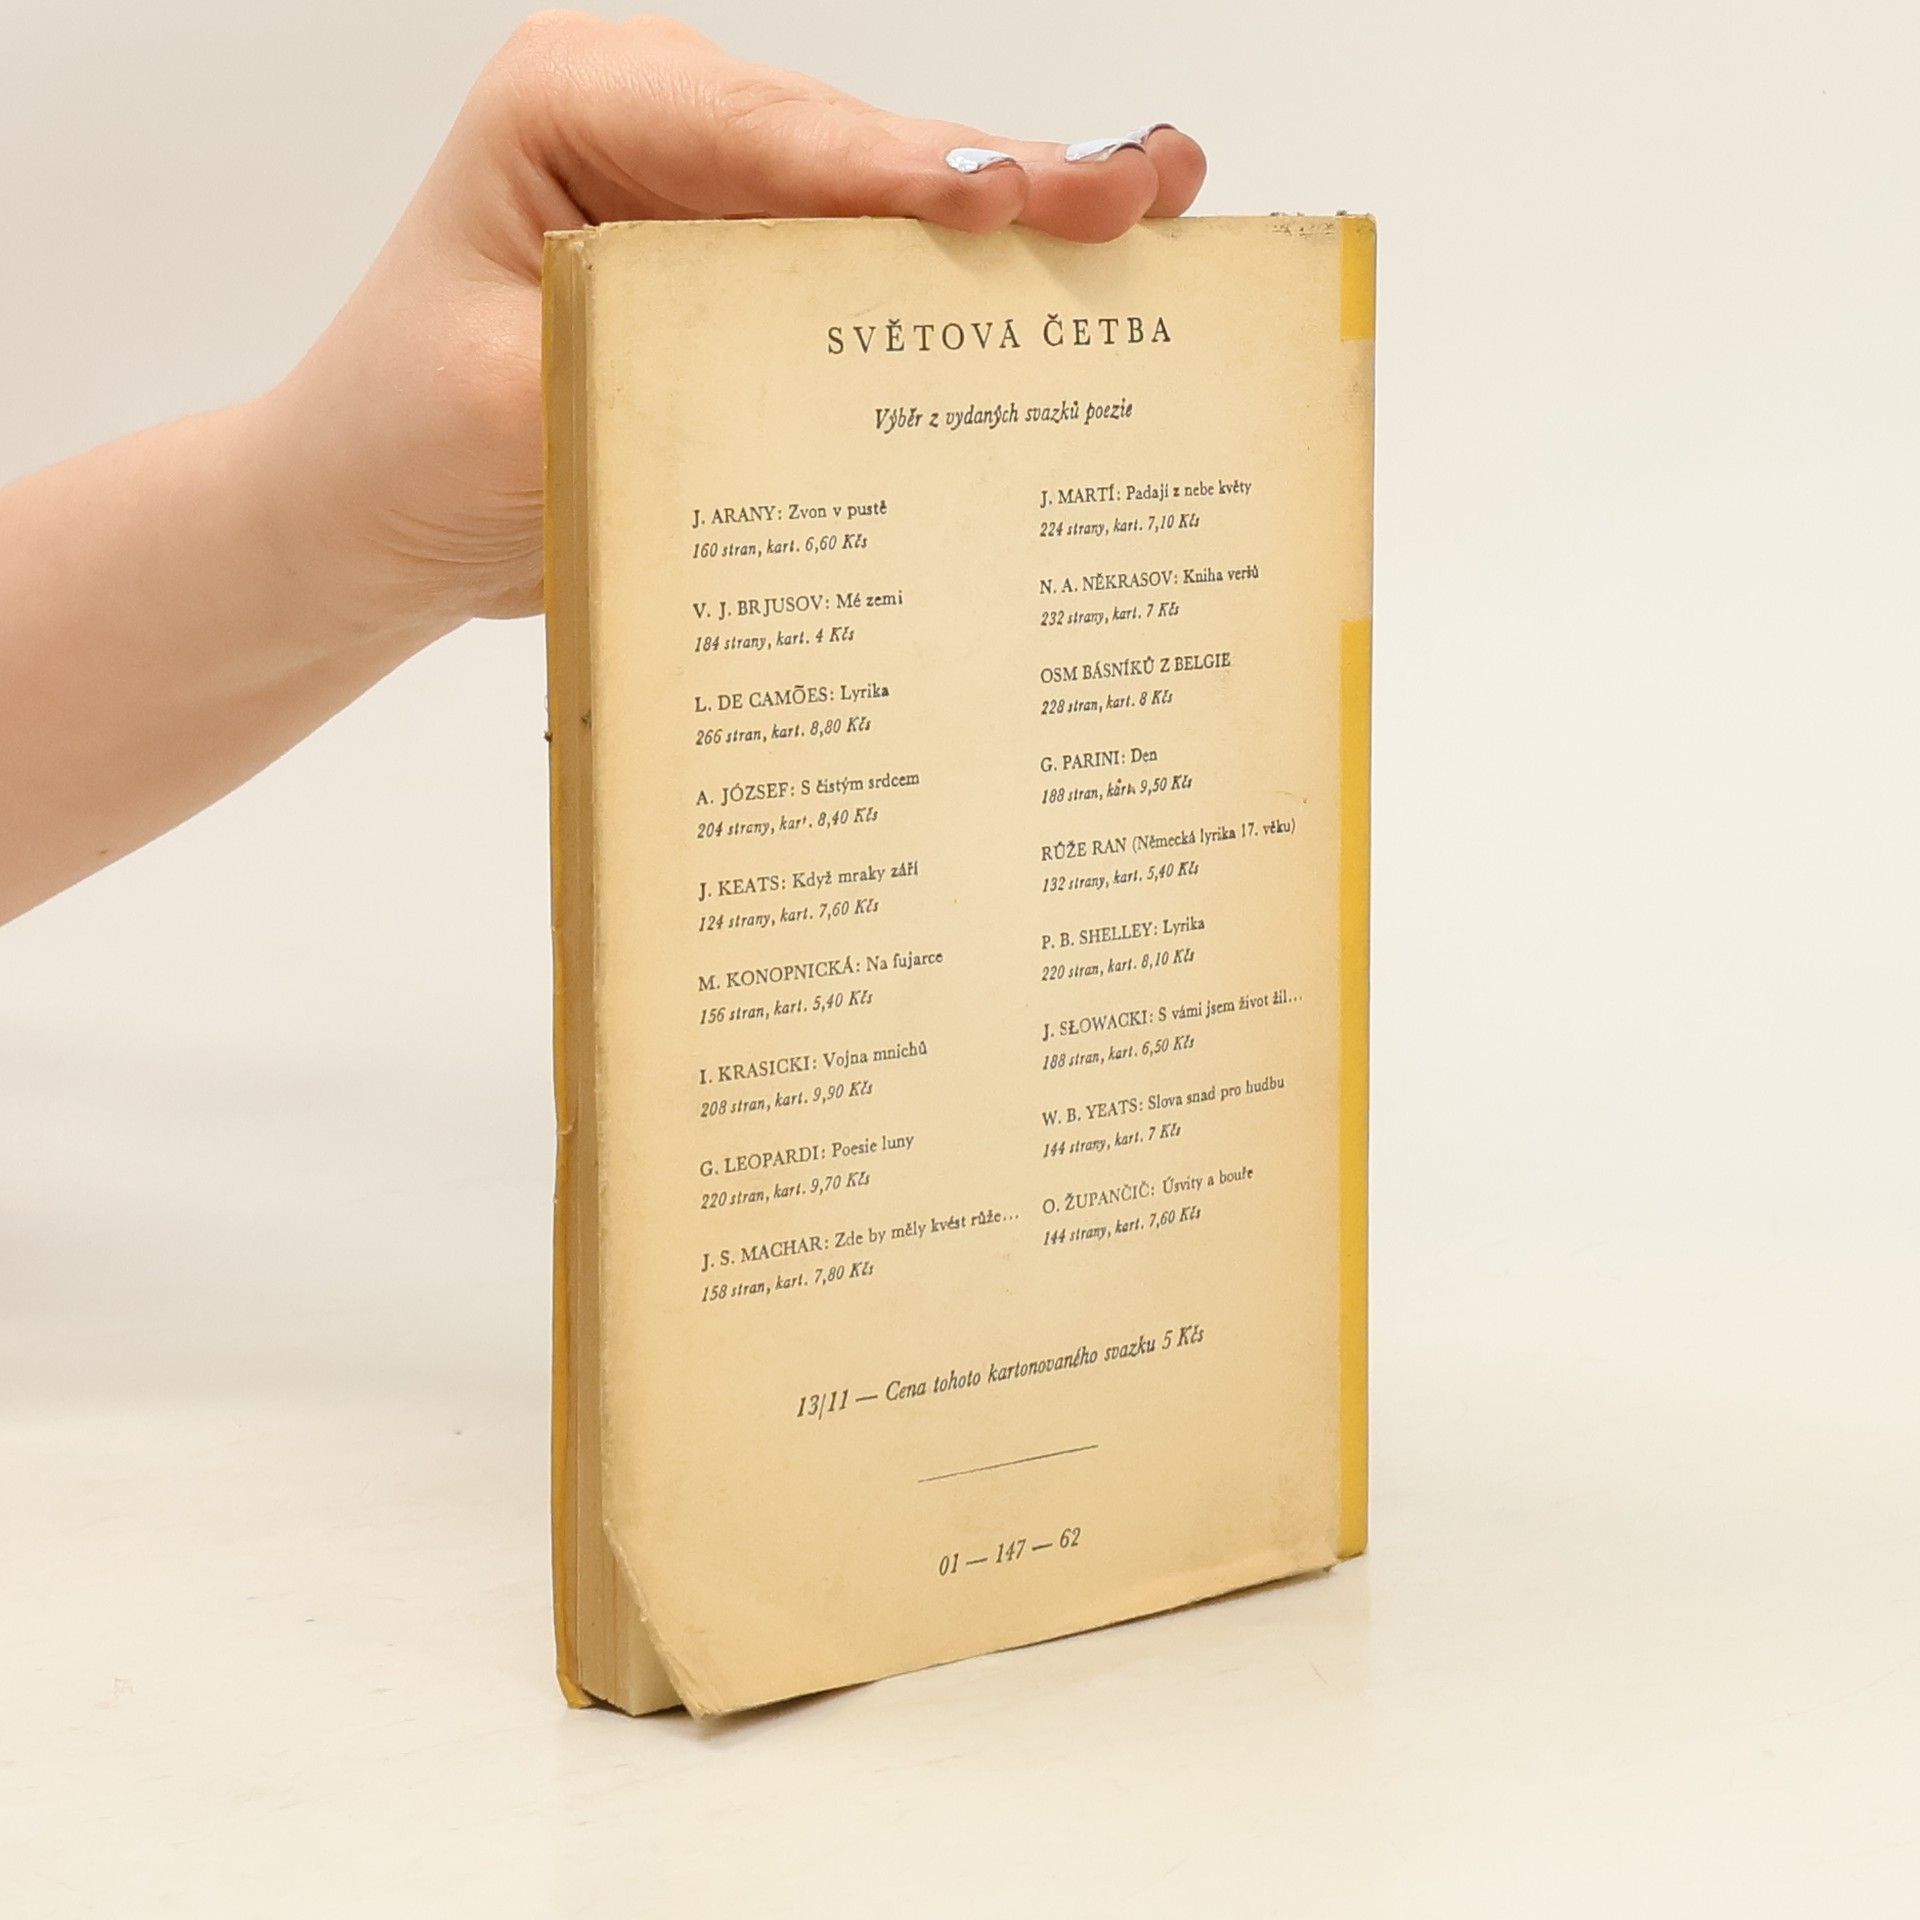 SVĚTOVÁ ČETBA
Výběr z vydaných svazků poezie
J. ARANY: Zvon v pustě
160 stran, kart. 6,60 Kčs
V. J. BRJUSOV: Mé zemi
184 strany, kart. 4 Kčs
L. DE CAMÕES: Lyrika
266 stran, kart. 8,80 Kčs
A. JÓZSEF: S čistým srdcem
204 strany, kart. 8,40 Kčs
J. KEATS: Když mraky září
124 strany, kart. 7,60 Kčs
M. KONOPNICKÁ: Na fujarce
156 stran, kart. 5,40 Kčs
I. KRASICKI: Vojna mnichů
208 stran, kart. 9,90 Kčs
G. LEOPARDI: Poesie luny
220 stran, kart. 9,70 Kčs
J. S. MACHAR: Zde by měly kvést růže...
158 stran, kart. 7,80 Kčs
J. MARTÍ: Padají z nebe květy
224 strany, kart. 7,10 Kčs
N. A. NĚKRASOV: Kniha veršů
232 strany, kart. 7 Kčs
OSM BÁSNÍKŮ Z BELGIE
228 stran, kart. 8 Kčs
G. PARINI: Den
188 stran, kart. 9,50 Kčs
RŮŽE RAN (Německá lyrika 17. věku)
132 strany, kart. 5,40 Kčs
P. B. SHELLEY: Lyrika
220 stran, kart. 8,10 Kčs
J. SŁOWACKI: S vámi jsem život žil...
188 stran, kart. 6,50 Kčs
W. B. YEATS: Slova snad pro hudbu
144 strany, kart. 7 Kčs
O. ŽUPANČIČ: Úsvity a bouře
144 strany, kart. 7,60 Kčs
13/11 — Cena tohoto kartonovaného svazku 5 Kčs
01 — 147 — 62